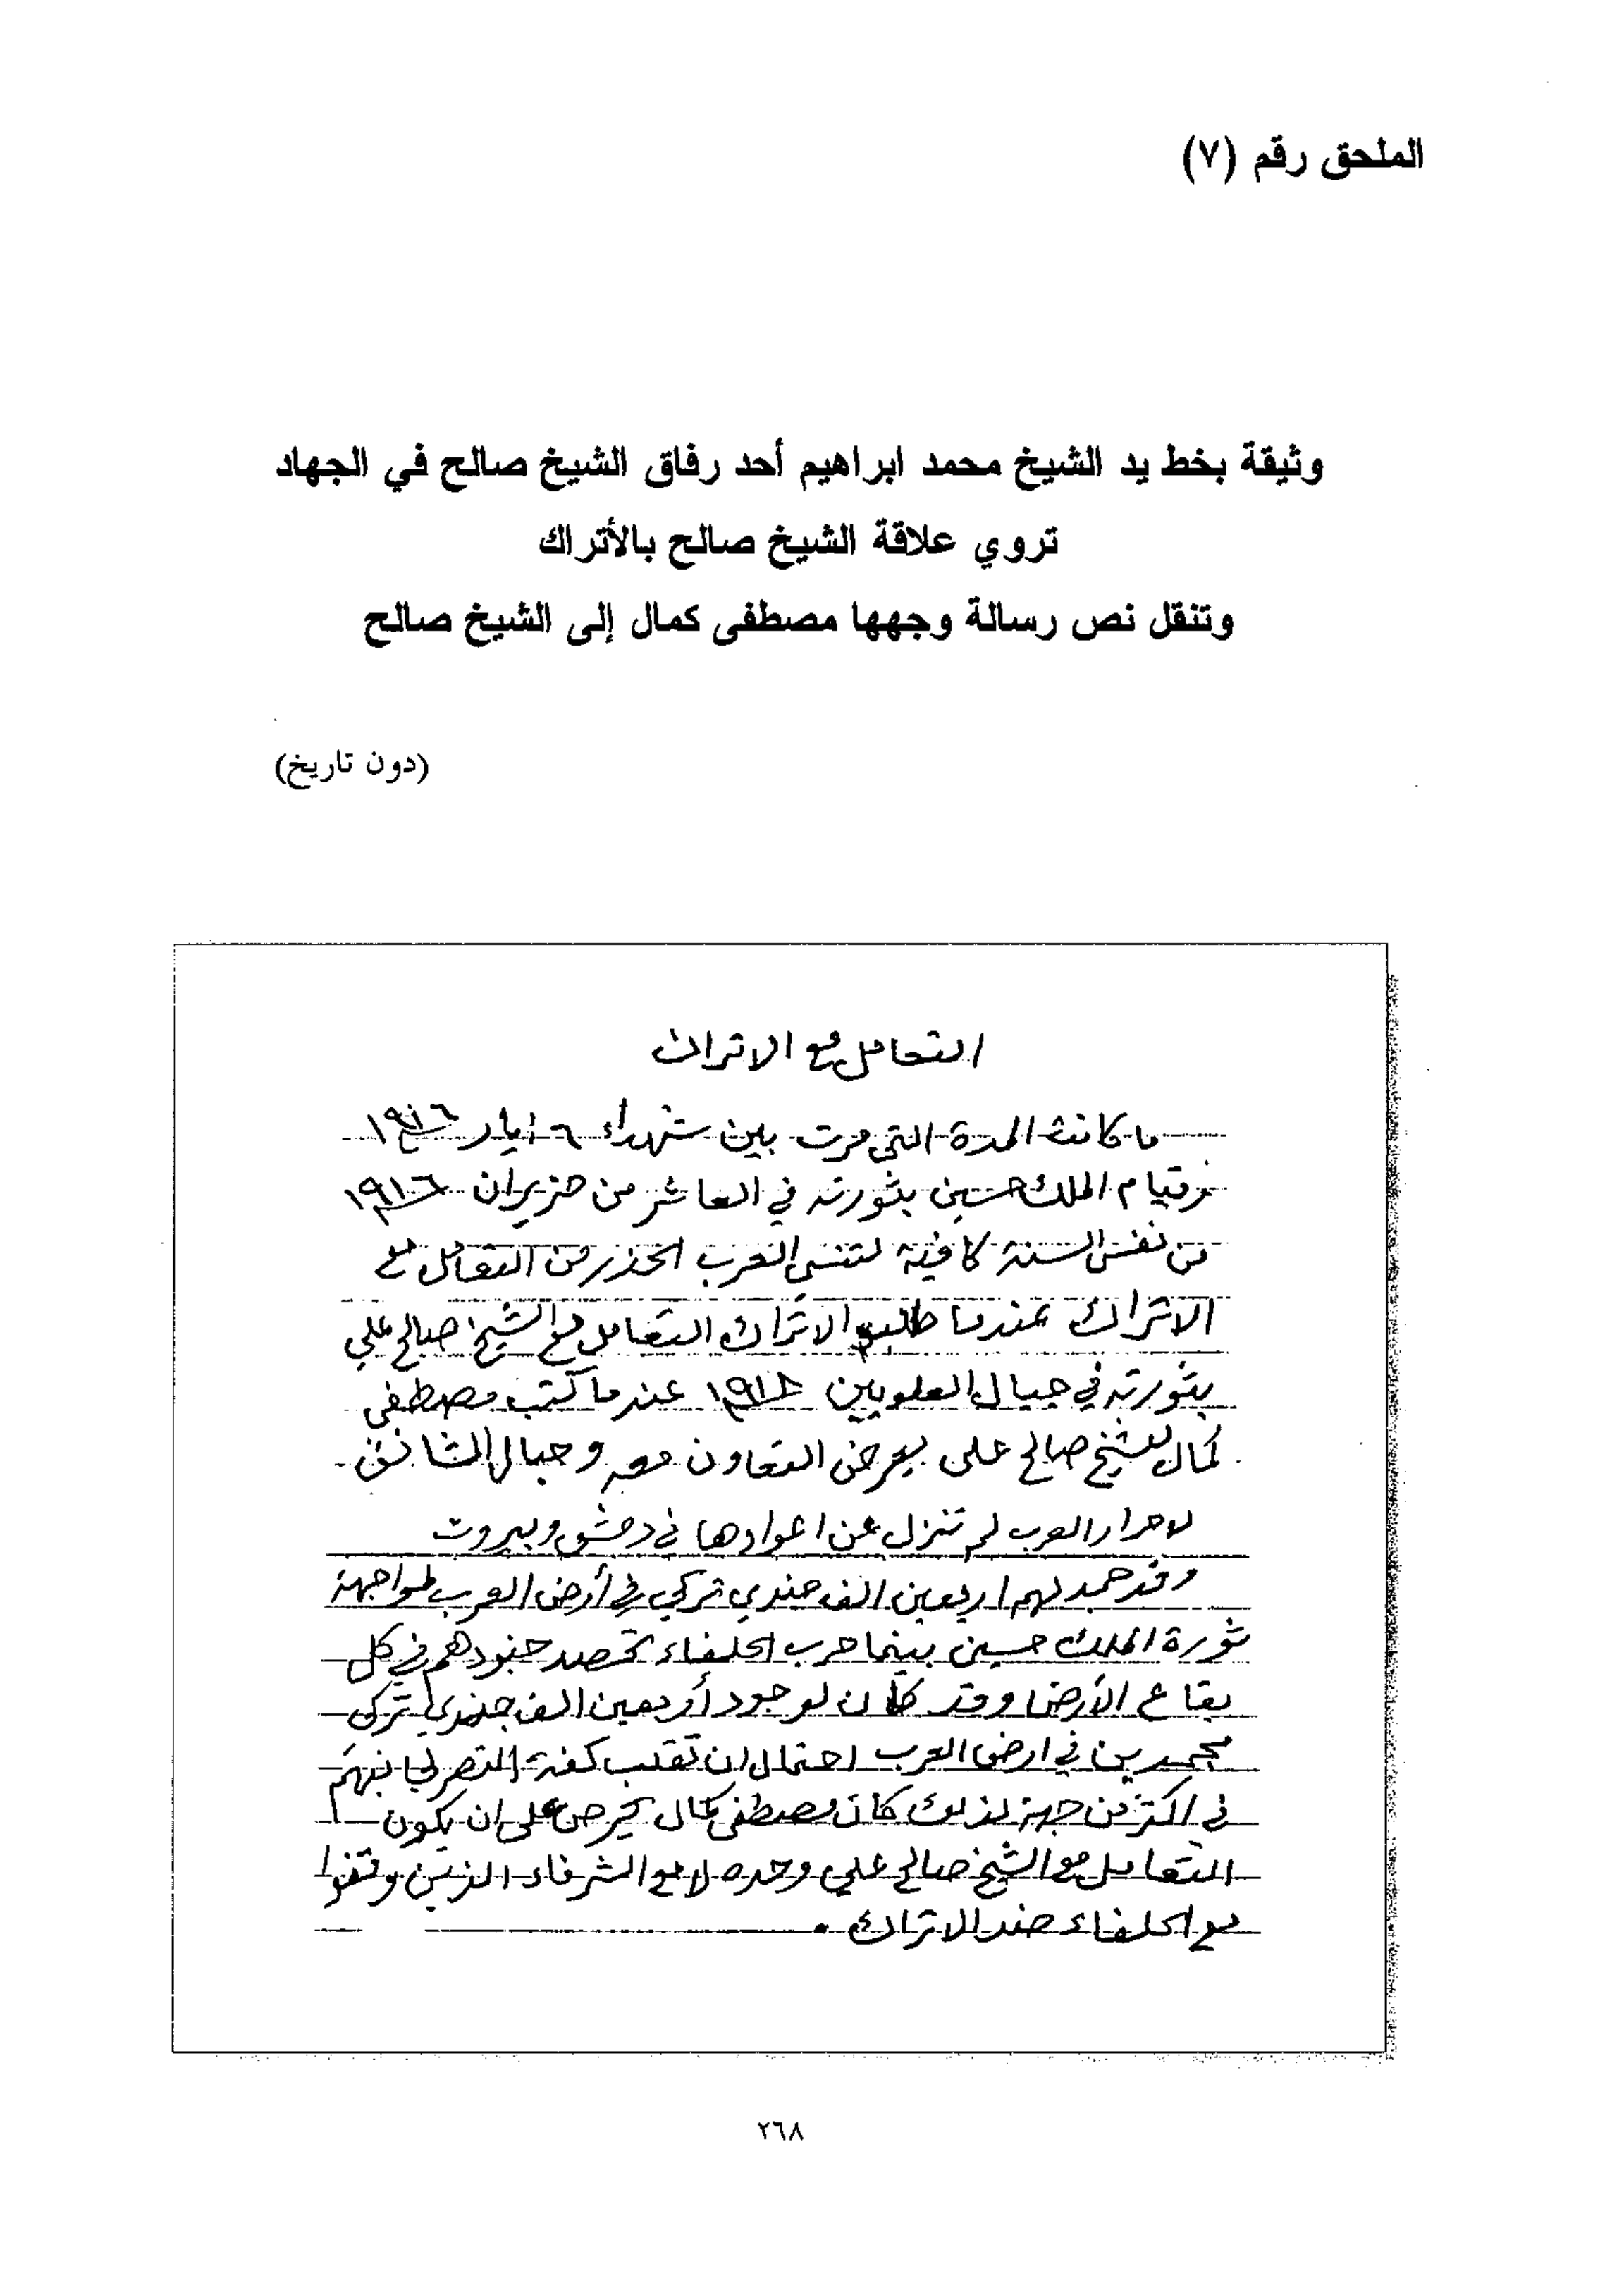 الملحق رقم (٧)
وثيقة بخط يد الشيخ محمد ابراهيم أحد رفاق الشيخ صالح في الجهاد
تروي علاقة الشيخ صالح بالأتراك
وتنقل نص رسالة وجهها مصطفى كمال إلى الشيخ صالح
(دون تاريخ)
التعامل مع الاتراك
ما كانت المدة التي مرت بين شهداء ٦ ايار ١٩١٦
وقيام الملك حسين بثورته في العاشر من حزيران ١٩١٦
من نفس السنة كافية لتنسي العرب الحذر من التعامل مع
الاتراك عندما طلب الاتراك التعامل مع الشيخ صالح علي
بثورته في جبال العلويين ١٩١٨ عندما كتب مصطفى
كمال للشيخ صالح علي يعرض التعاون معه وحبال المشانق
لاحرار العرب لم تنزل عن اعوادها في دمشق وبيروت
وقد جمد لهم اربعين الف جندي تركي في أرض العرب لمواجهة
ثورة الملك حسين بينما حرب الحلفاء تحصد جنودهم في كل
بقاع الأرض وقد كان لوجود أربعين الف جندي تركي
مجمدين في ارض العرب احتمال ان تقلب كفة النصر لجانبهم
في اكثر من جهة لذلك كان مصطفى كمال يحرص على ان يكون
التعامل مع الشيخ صالح علي وحده لا مع الشرفاء الذين وقفوا
مع الحلفاء ضد الاتراك .
٢٦٨